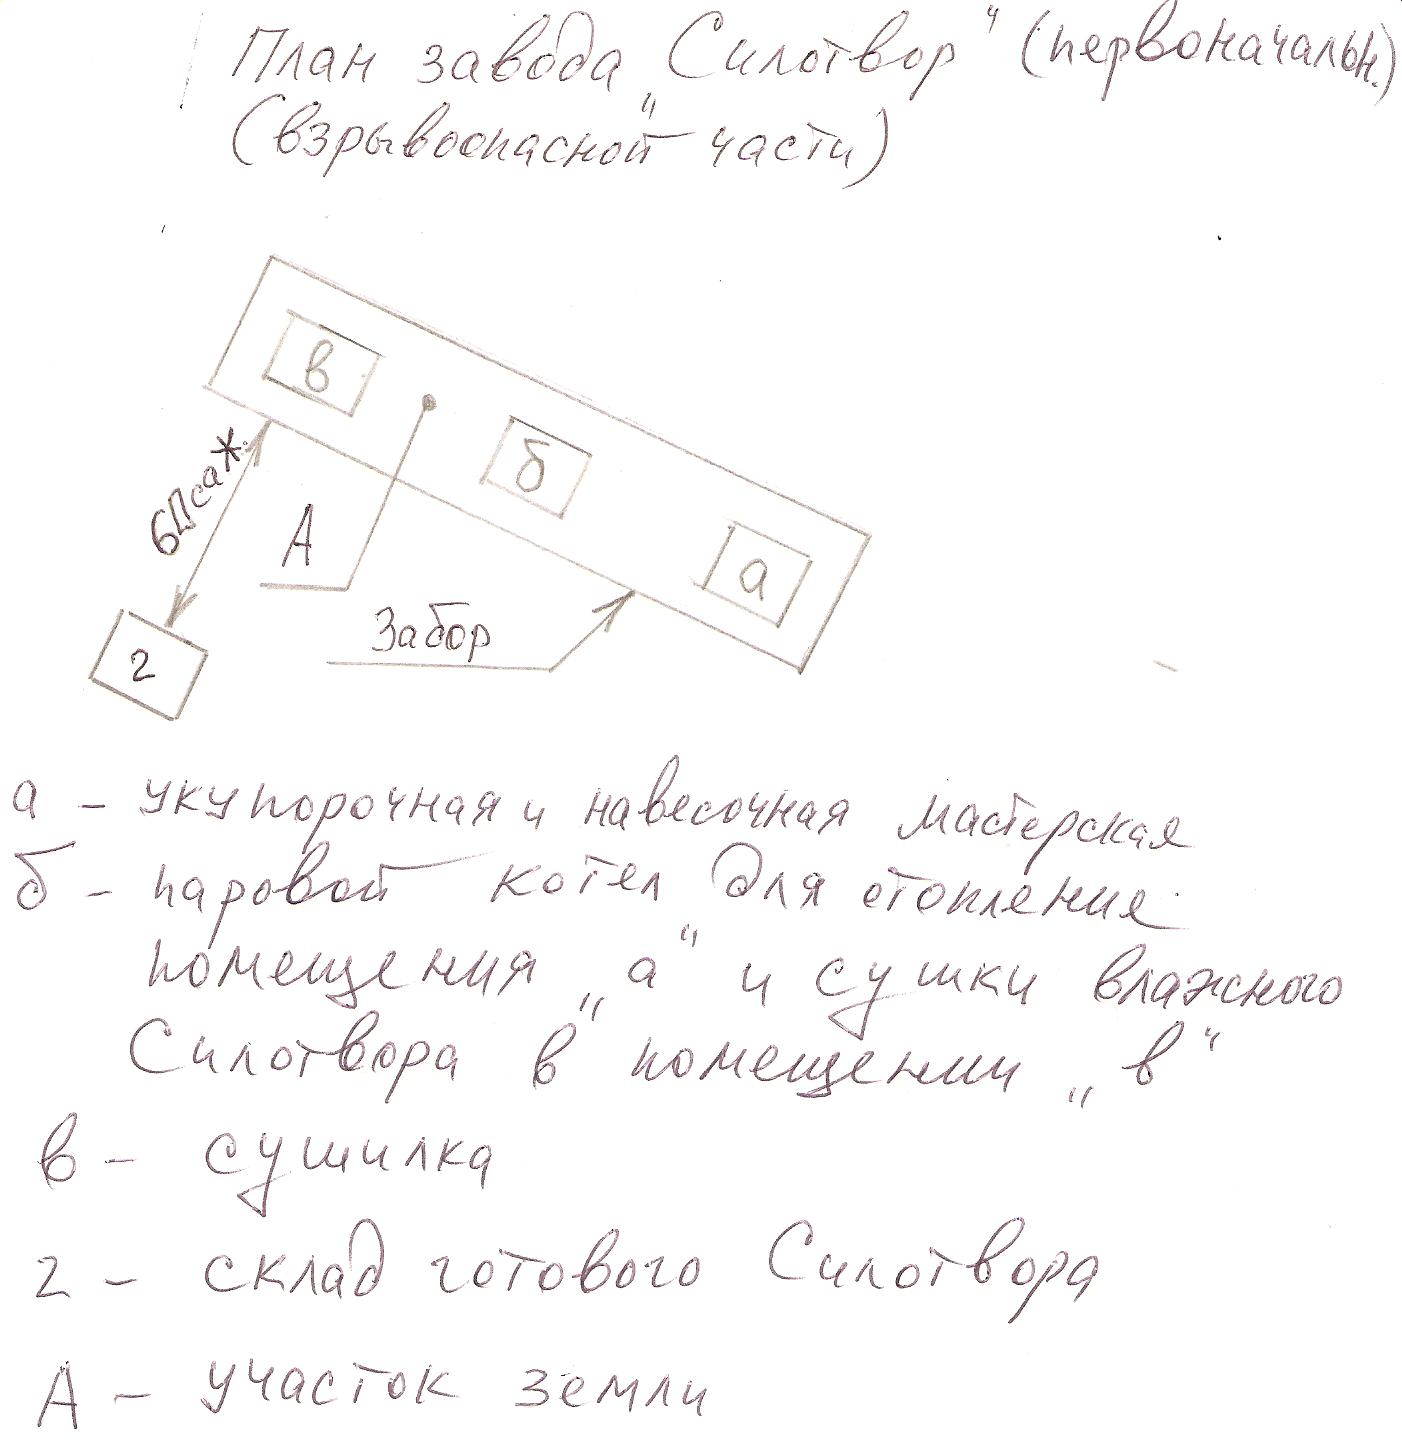 План завода „Силотвор“ (первоначальн.)
(взрывоопасной части)
в
б
а
60 саж.
А
Забор
г
а – укупорочная и навесочная мастерская
б – паровой котел для отопления
помещения „а“ и сушки влажного
Силотвора в помещении „в“
в – сушилка
г – склад готового Силотвора
А – участок земли